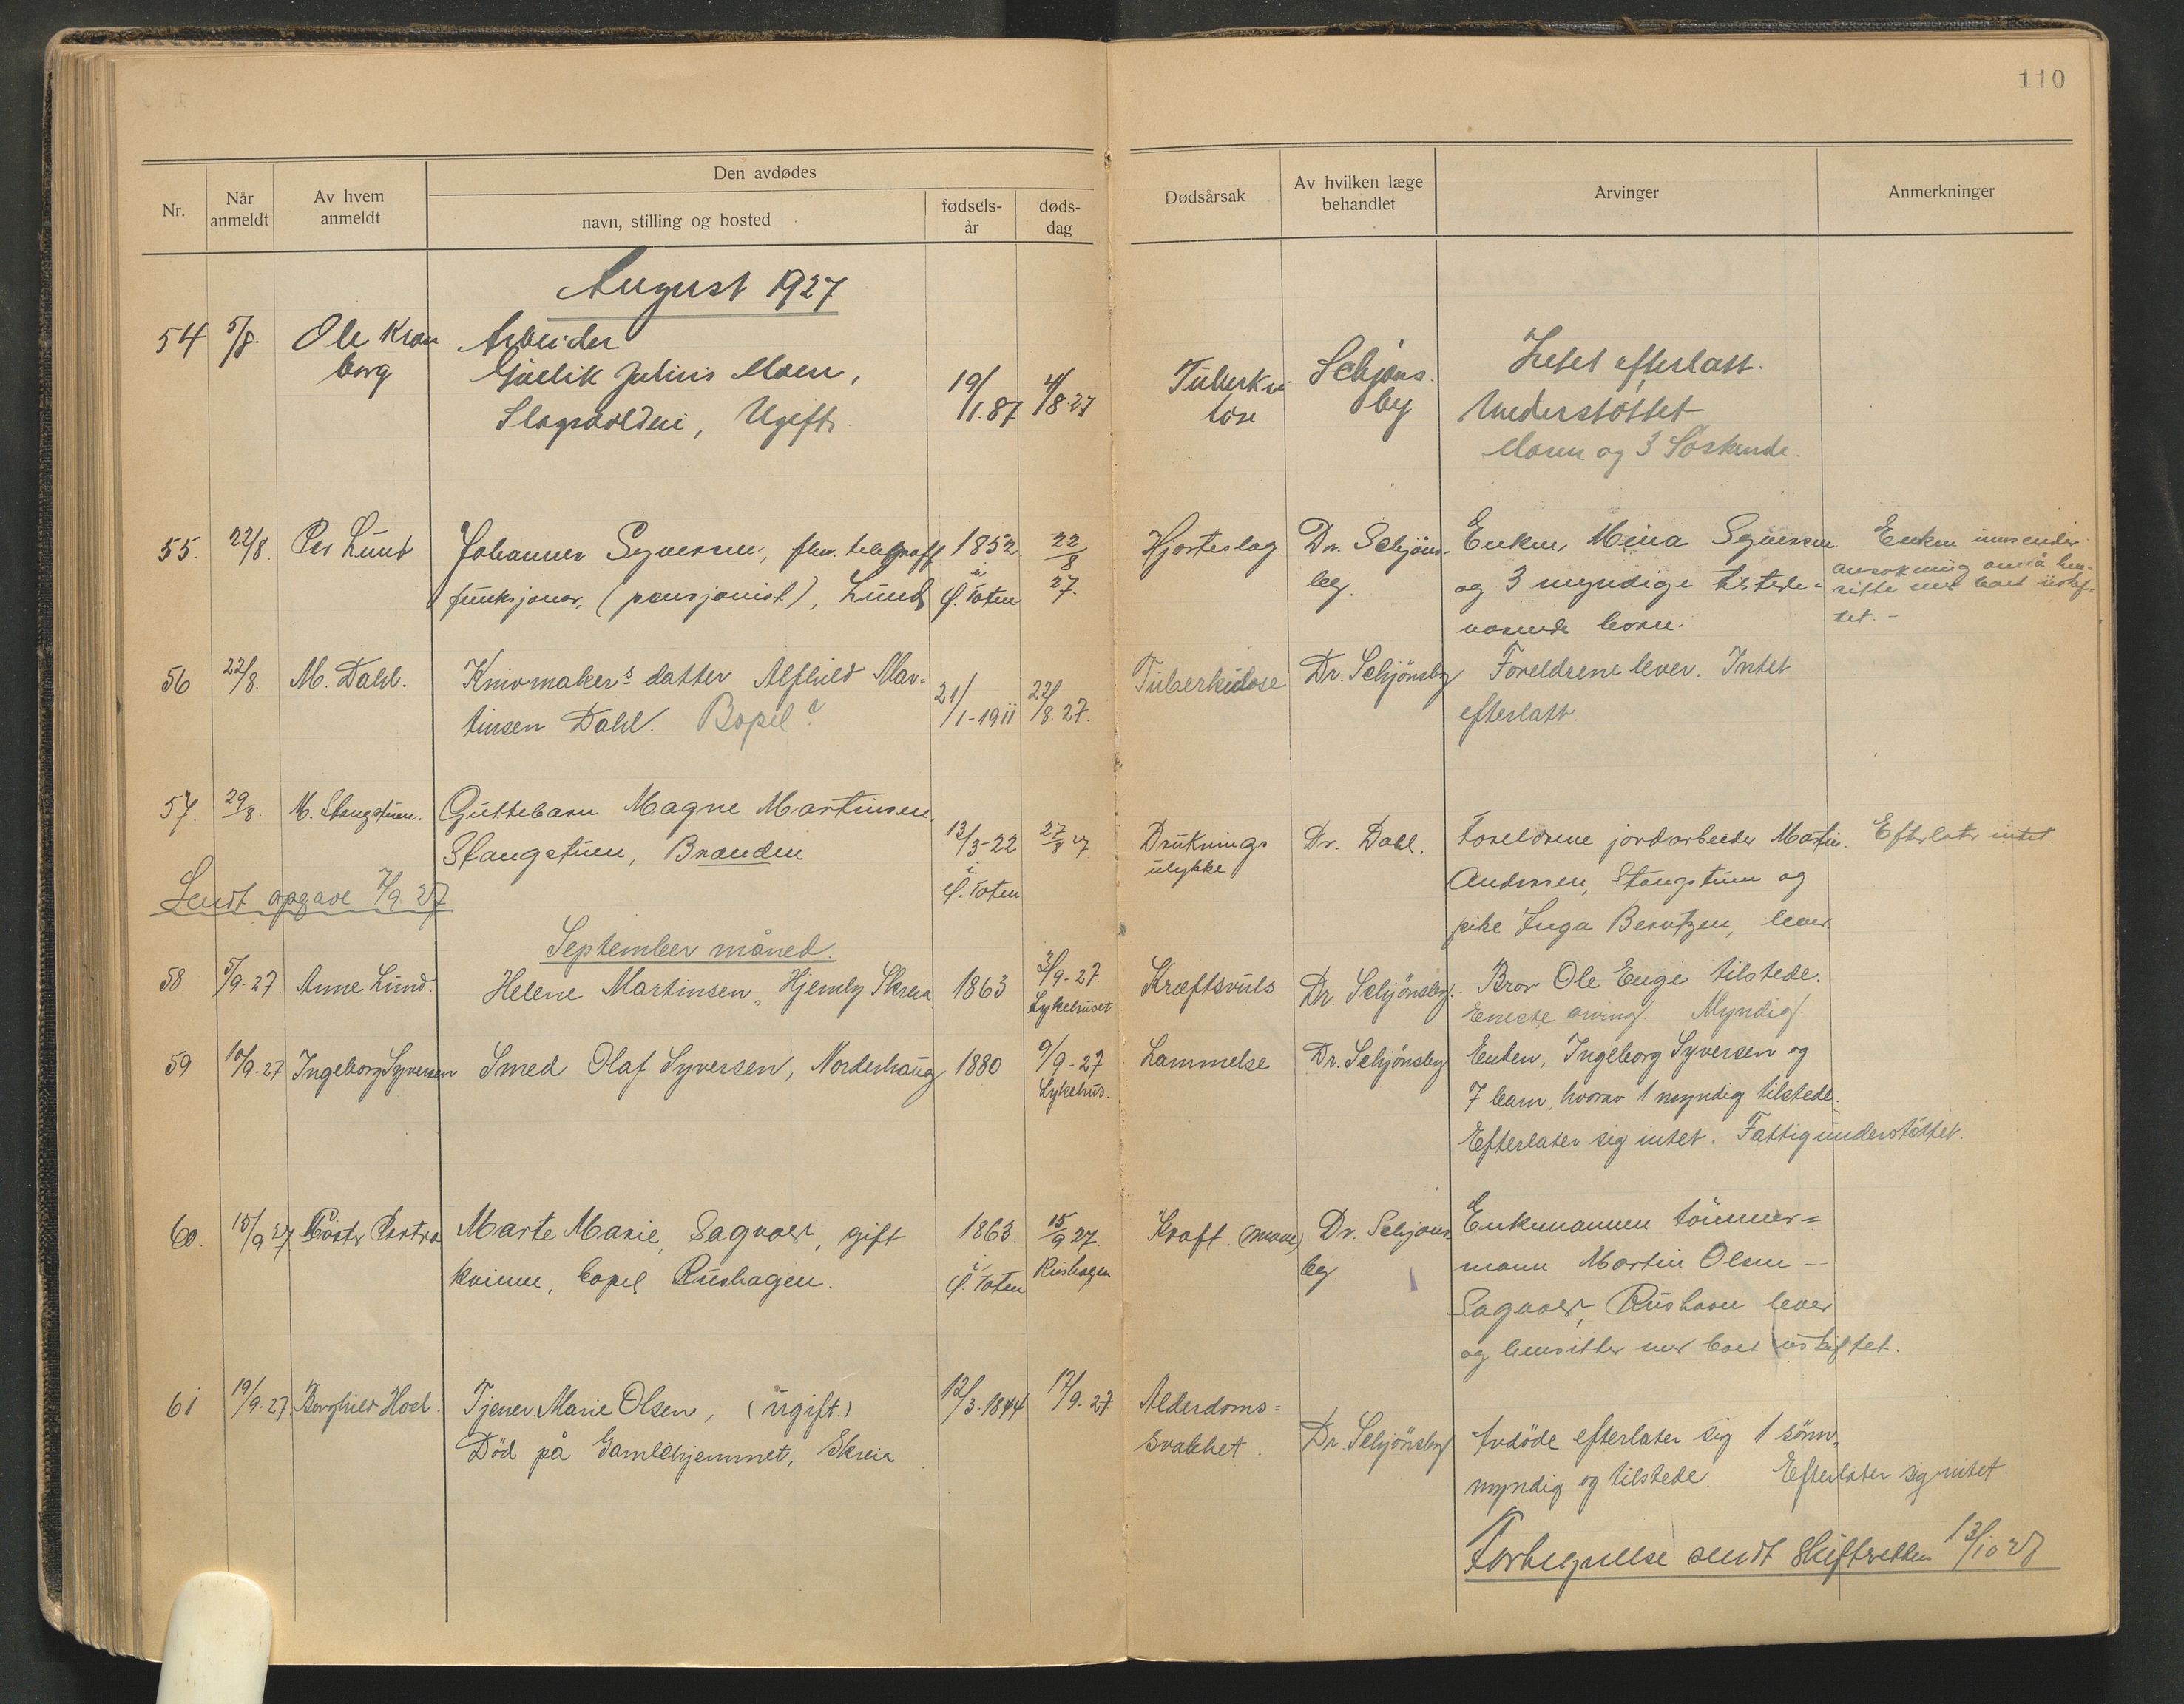 110
Nr.
Når anmeldt
Av hvem anmeldt
Den avdødes
navn, stilling og bosted
fødsels-år
døds-dag
Dødsårsak
Av hvilken læge behandlet
Arvinger
Anmerkninger
August 1927
54 5/8. Ole Kron Arbeider
borg Julius Moen, 19/1.87 4/8.27 Tuberku Schjøns. Intet efterlatt.
Ugift. løse by Understøttet
Moren og 3 Søskende.
55. 22/8 Per Lund Johannes Syversen, fhv. telegraf 1852 22/8 Hjerteslag. Dr. Schjøns- Enken, Mina Syversen Enken innsender
funksjonær, (pensjonist), Lund i Ø. Toten 27. by. og 3 myndige tilstede- ansøkning om å hen-
værende børn. sitte med boet uskif-
tet. -
56 22/8. M. Dahl. Knivmakers datter Alfhild Mar- 21/1-1911 22/8.27. Tuberkulose Dr. Schjønsby Foreldrene lever. Intet
tinsen Dahl. Bopel? efterlatt.
57. 29/8. M. Stangstuen. Guttebarn Magne Martinsen,
Stangstuen, Branden 13/3-22 27/8 27 Druknings Dr. Dahl. Foreldrene jordarbeider Martin Efterlater intet.
i Ø. Toten ulykke Andersen, Stangstuen og
Sendt opgave 7/9 27
pike Inga Berntzen, lever.
September måned.
58. 5/9-27. Anne Lund. Helene Martinsen, Hjemly Skreia 1863 3/9-27. Kræftsvuls Dr. Schjønsby. Bror Ole Enge tilstede.
Sykehuset Eneste arving. Myndig.
59 10/9-27 Ingeborg Syversen Smed Olaf Syversen, Nordenhaug 1880 9/9-27 Lammelse Dr. Schjønsby Enken, Ingeborg Syversen og
Sykehus. 7 barn, hvorav 1 myndig tilstede.
Efterlater sig intet. Fattigunderstøttet.
60. 15/9 27 Marte Marie Sagvold, gift 1863. 15/9 27. Kræft (mave) Dr. Schjøns Enkemannen tømmer=
kvinne, bopel Rushagen. i Ø. Toten Rushagen by. mann Martin Olsen -
Sagvold, lever
og hensitter med boet uskiftet.
61 19/9-27. Borghild Hoel. Tjener Marie Olsen, (ugift.) 12/3-1844 17/9-27 Alderdoms=
Død på Gamlehjemmet, Skreia svakhet. Dr. Schjønsby Avdøde efterlater sig 1 sønn,
myndig og tilstede. Efterlater sig intet.
Fortegnelse sendt Skifteretten 13/10 27